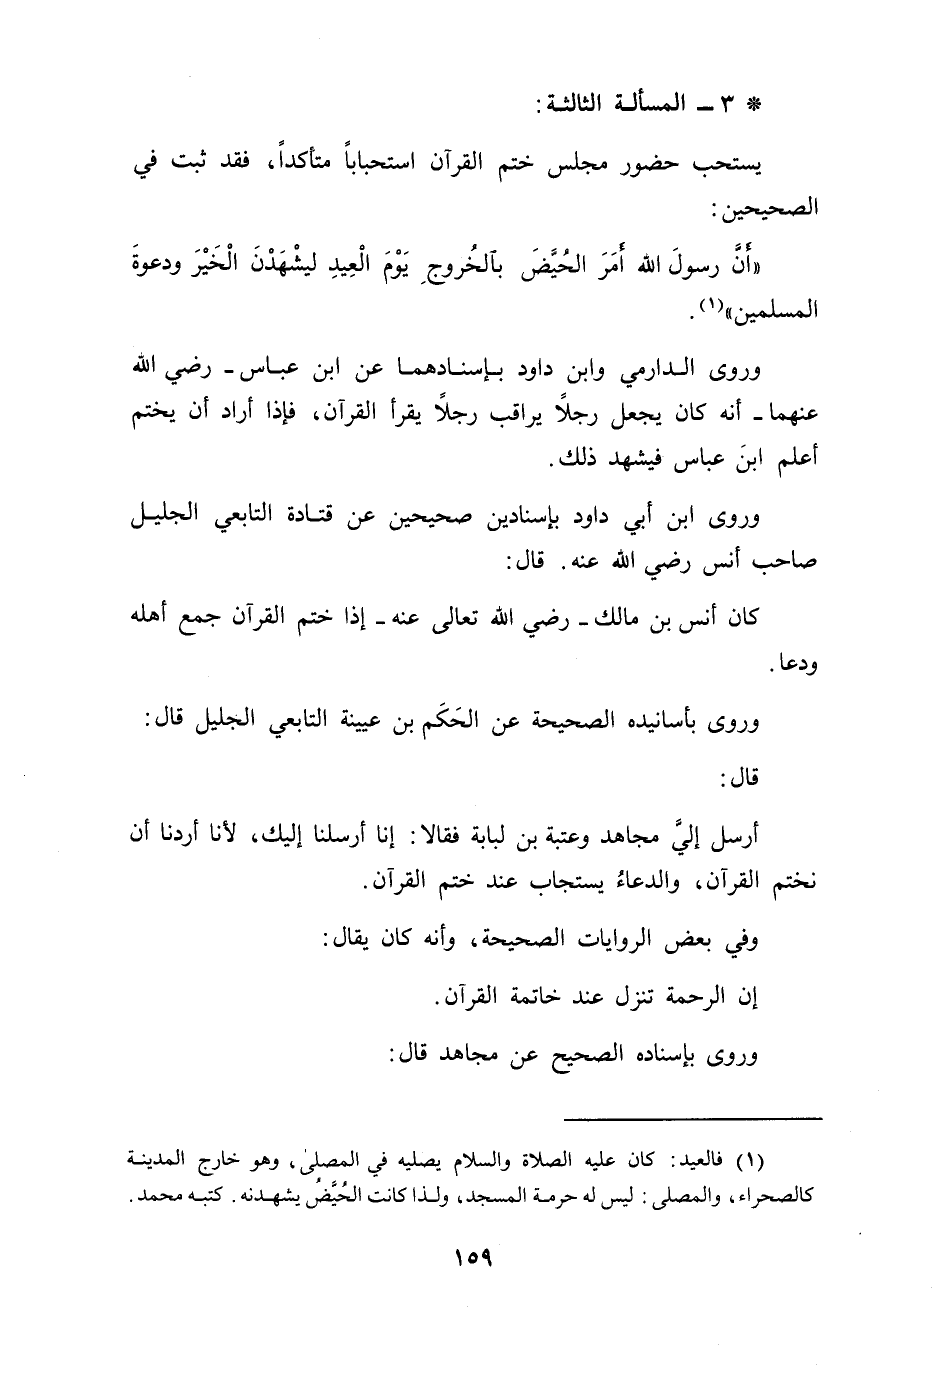 * ٣ ـ المسألة الثالثة:
يستحب حضور مجلس ختم القرآن استحباباً متأكداً، فقد ثبت في
الصحيحين:
«أَنَّ رسولَ الله أَمَرَ الحُيَّضَ بٱلخُروجِ يَوْمَ الْعِيدِ ليشْهَدْنَ الْخَيْرَ ودعوةَ
المسلمين»(١).
وروى الدارمي وابن داود بإسنادهما عن ابن عباس ـ رضي الله
عنهما ـ أنه كان يجعل رجلاً يراقب رجلاً يقرأ القرآن، فإذا أراد أن يختم
أعلم ابنَ عباس فيشهد ذلك.
وروى ابن أبي داود بإسنادين صحيحين عن قتادة التابعي الجليل
صاحب أنس رضي الله عنه. قال:
كان أنس بن مالك ـ رضي الله تعالى عنه ـ إذا ختم القرآن جمع أهله
ودعا.
وروى بأسانيده الصحيحة عن الحَكَم بن عيينة التابعي الجليل قال:
قال:
أرسل إليَّ مجاهد وعتبة بن لبابة فقالا: إنا أرسلنا إليك، لأنا أردنا أن
نختم القرآن، والدعاءُ يستجاب عند ختم القرآن.
وفي بعض الروايات الصحيحة، وأنه كان يقال:
إن الرحمة تنزل عند خاتمة القرآن.
وروى بإسناده الصحيح عن مجاهد قال:
(١) فالعيد: كان عليه الصلاة والسلام يصليه في المصلىٰ، وهو خارج المدينة
كالصحراء، والمصلى: ليس له حرمة المسجد، ولذا كانت الحُيَّضُ يشهدنه. كتبه محمد.
١٥٩